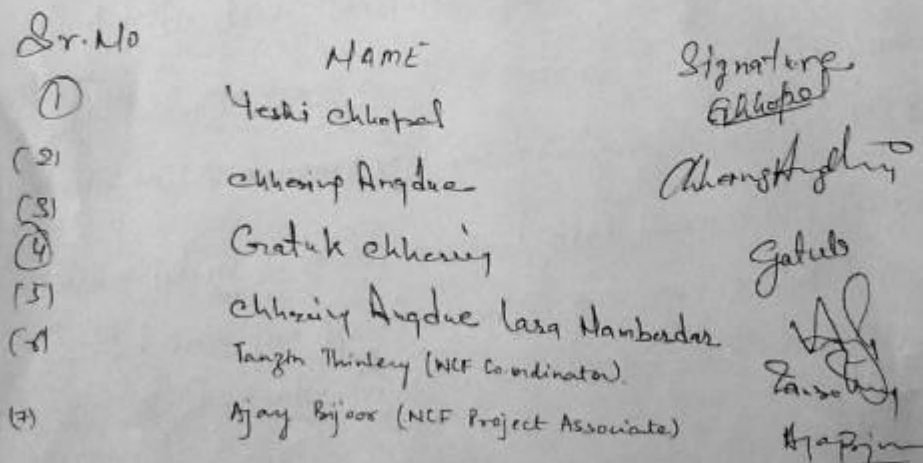 Sr. No NAME Signature
(1) Yeshi Chhopal Chhopel
(2) Chhering Angdue
(3)
(4) Gatuk Chhering Gatuk
(5) Chhering Angdue Lara Namberdar
(6) Tanzin Thinley (NCF Co-ordinator)
(7) Ajay Bijoor (NCF Project Associate)